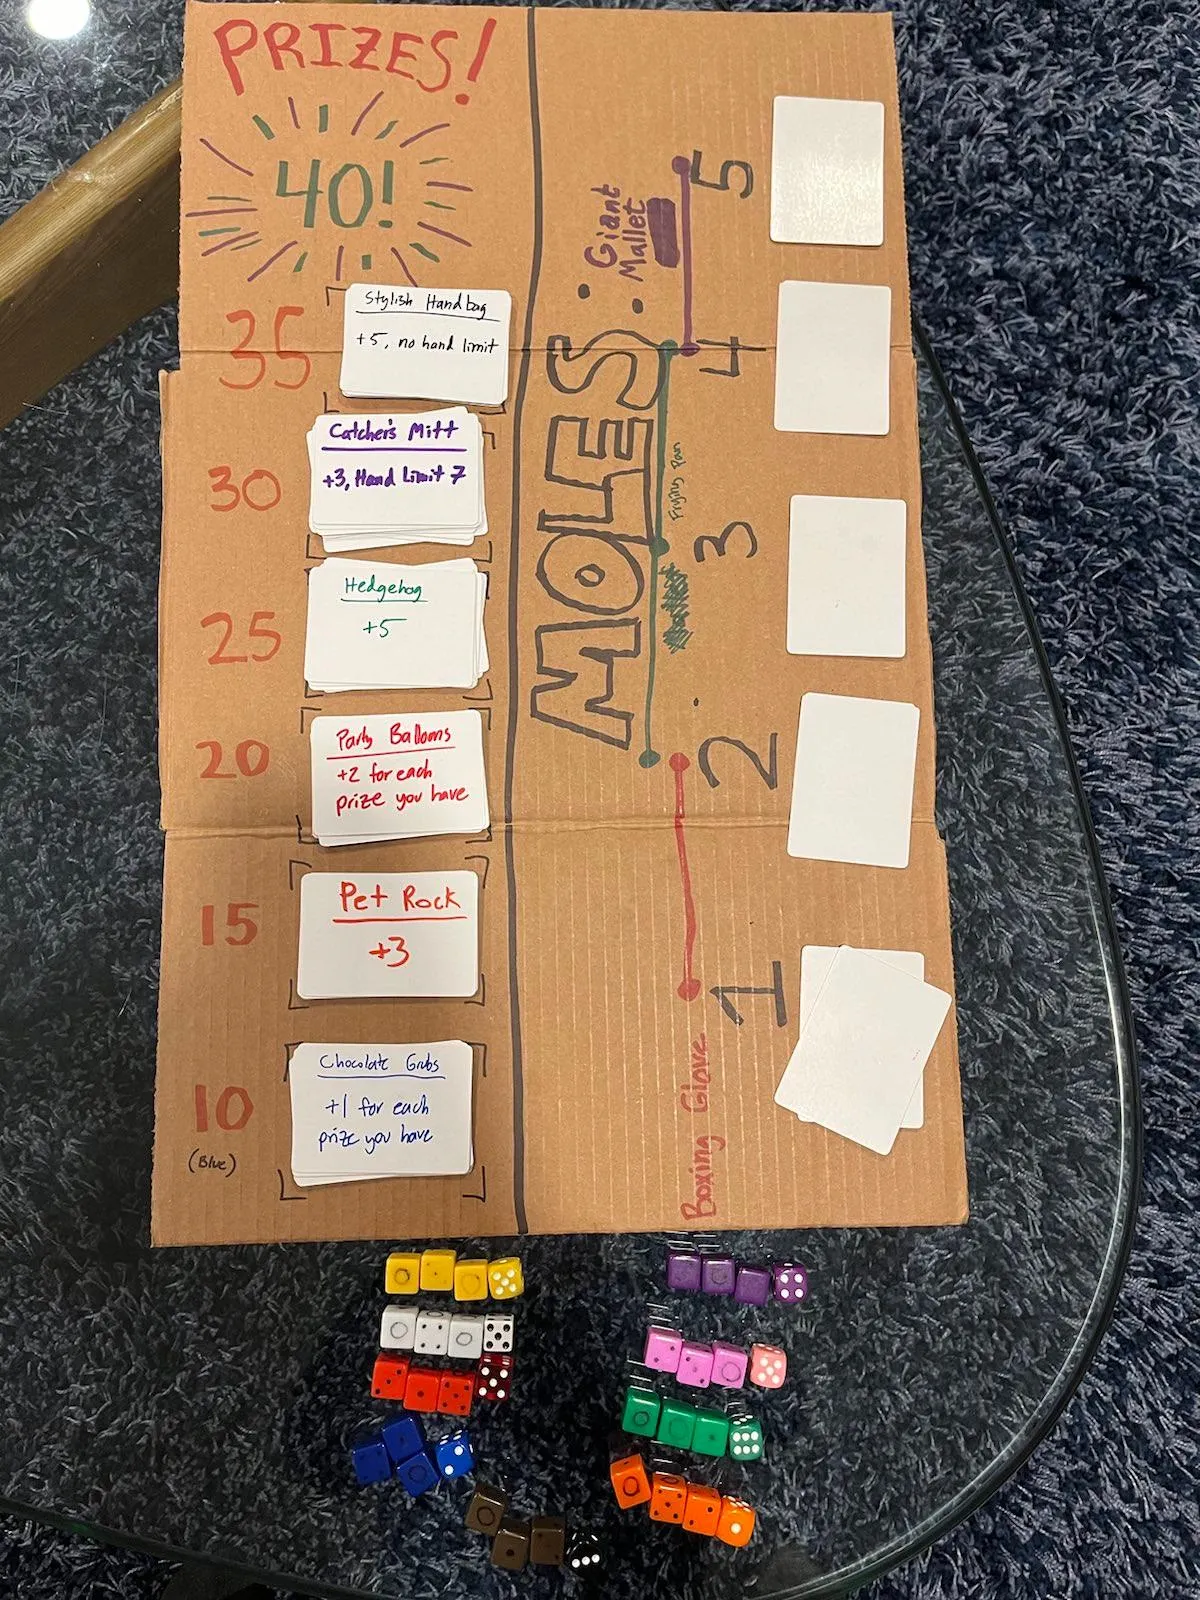 PRIZES!
40!
35
Stylish Handbag
+5, no hand limit
30
Catcher's Mitt
+3, Hand Limit 7
25
Hedgehog
+5
20
Party Balloons
+2 for each
prize you have
15
Pet Rock
+3
10
(Blue)
Chocolate Grubs
+1 for each
prize you have
MOLES:
Giant
Mallet
Frying Pan
Boxing Glove
1
2
3
4
5